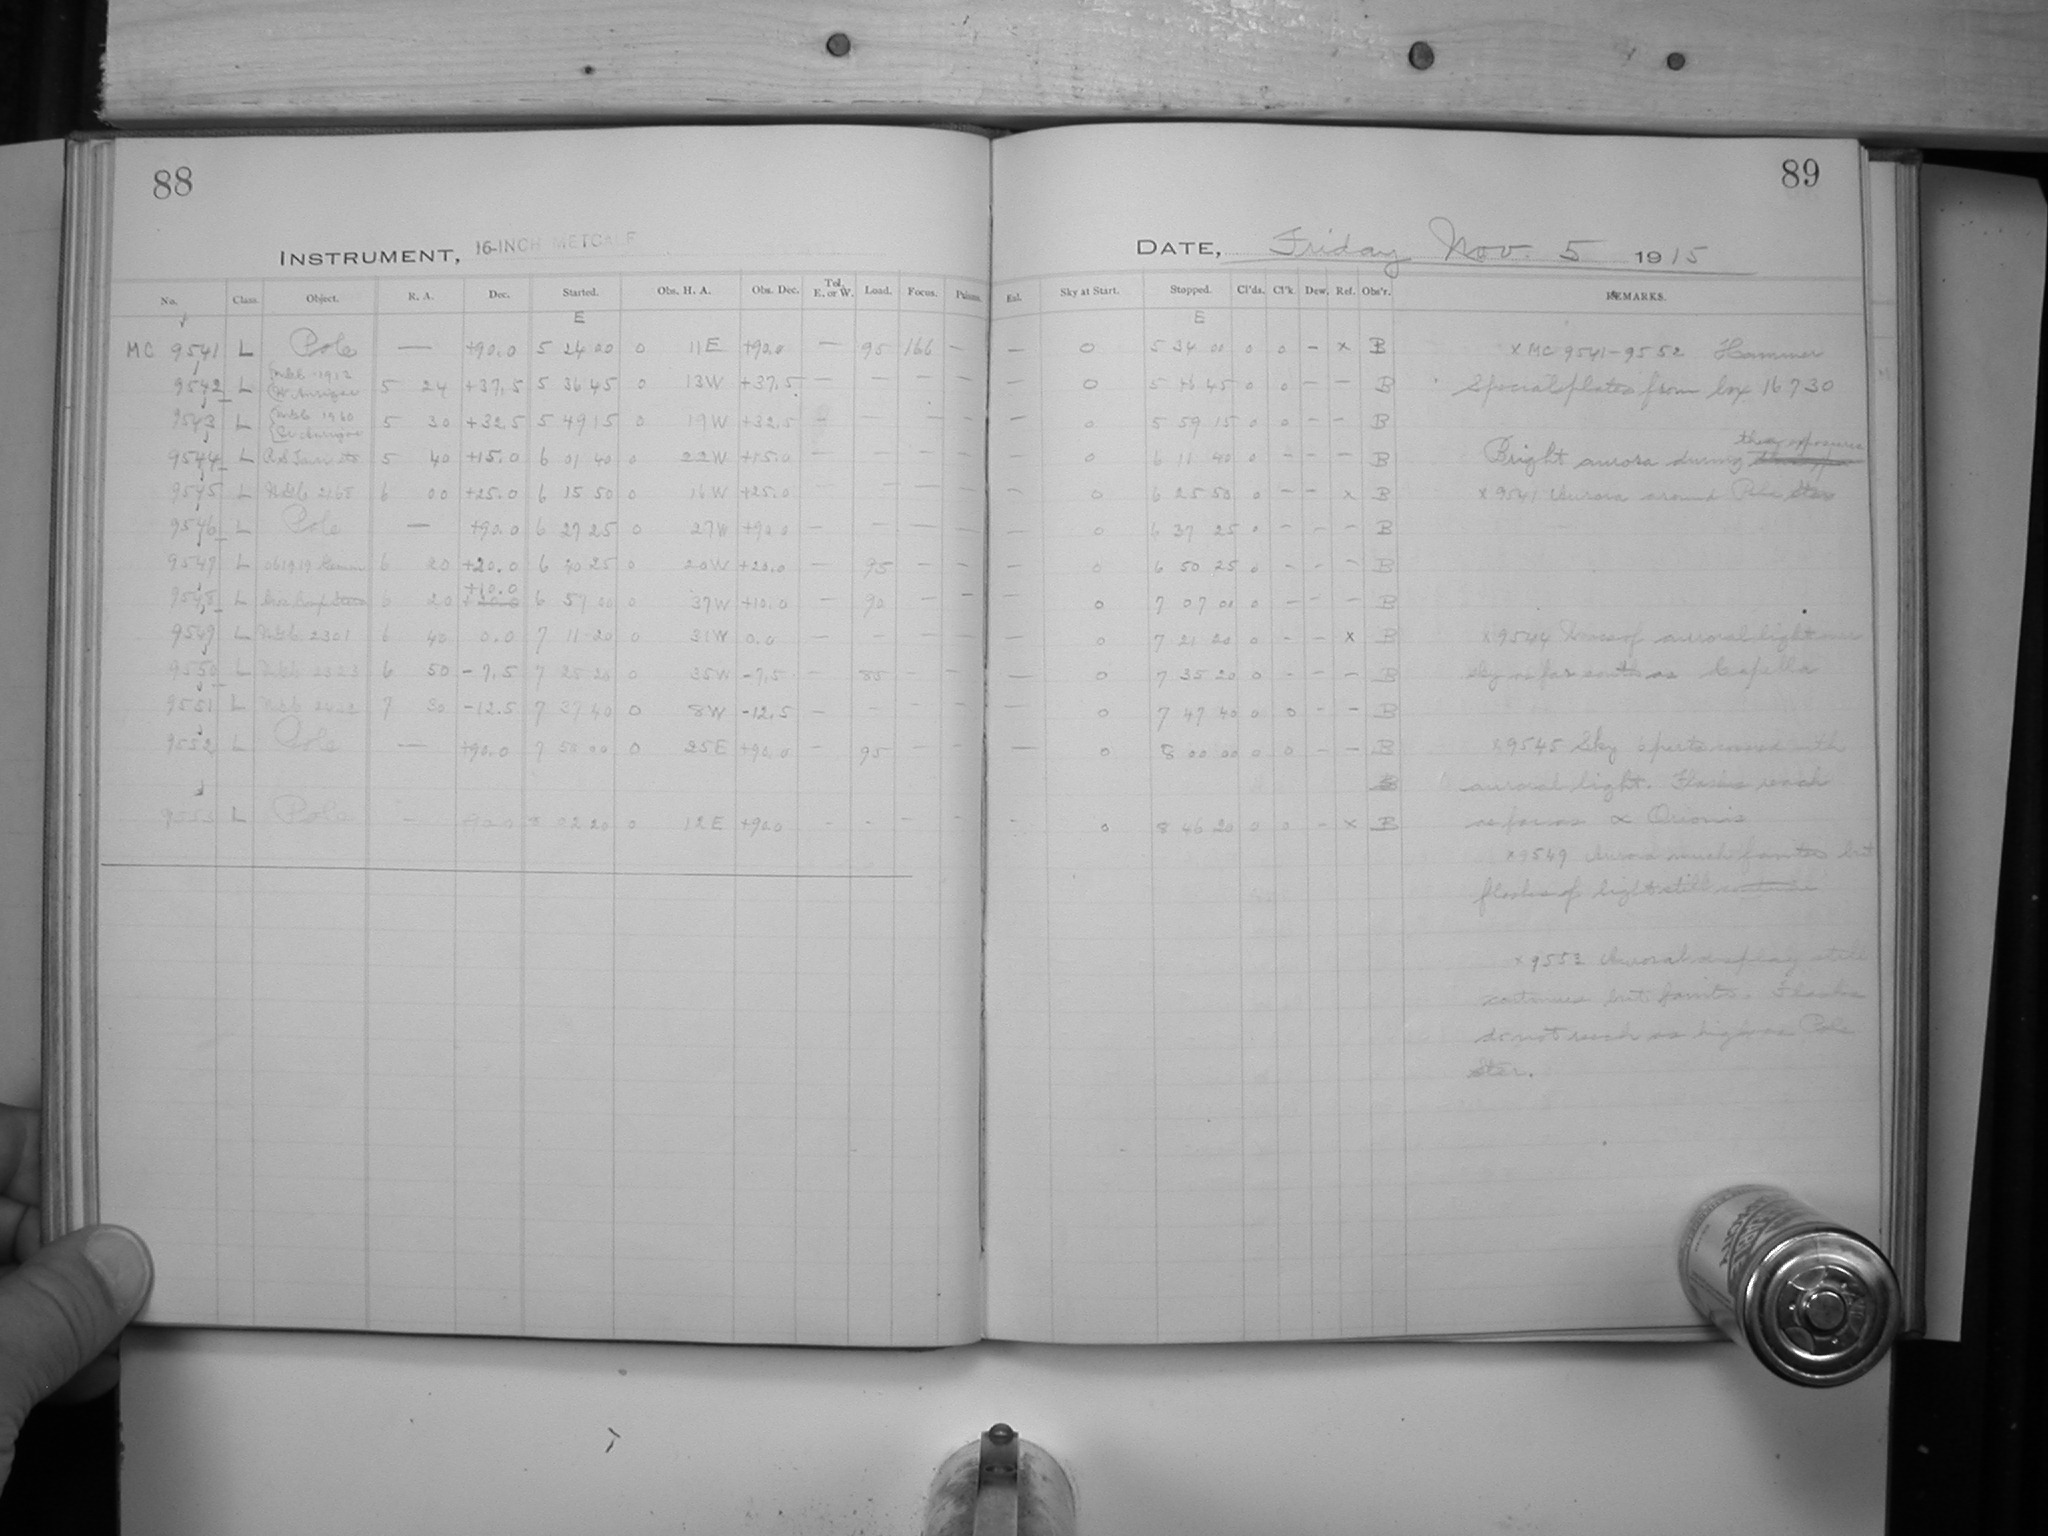 88
INSTRUMENT, 16-INCH METCALF
No. Class. Object. R. A. Dec. Started. Obs. H. A. Obs. Dec. Tel. E. or W. Load. Focus.
E
MC 9541 L Pole — +90.0 5 24 00 0 11E +90.0 — 95 166 —
9542 L 5 24 +37.5 5 36 45 0 13W +37.5 — — — —
9543 L 5 30 +32.5 5 49 15 0 19W +32.5 — — — —
9544 L 5 40 +15.0 6 01 40 0 22W +15.0 — — — —
9545 L 6 00 +25.0 6 15 50 0 16W +25.0 — — — —
9546 L Pole — +90.0 6 27 25 0 27W +90.0 — — — —
9547 L 6 20 +20.0 6 25 0 20W +20.0 — 95 — —
9548 L 20 +10.0 6 57 00 0 37W +10.0 — 90 — —
9549 L 2301 6 40 0.0 7 11 20 0 31W 0.0 — — — —
9550 L 6 50 -7.5 7 25 20 0 35W -7.5 — 85 — —
9551 L 7 30 -12.5 7 37 40 0 8W -12.5 — — — —
9552 L Pole — +90.0 7 50 00 0 25E +90.0 — 95 — —
9553 L Pole — 8 02 20 0 12E +90.0 — — — —
89
DATE, Friday Nov. 5 1915
Sky at Start. Stopped. Cl'ds. Cl'k. Dew. Ref. Obs'r. REMARKS.
E
— 0 5 34 00 0 0 — x B x MC 9541-9552 Hammer
— 0 5 45 0 0 — — B Special plates from box 16730
— 0 5 59 15 0 0 — — B
— 0 6 11 40 0 — — — B Bright aurora during these exposures
— 0 6 25 50 0 — — x B x 9541 Aurora around Pole Star
— 0 6 37 25 0 — — — B
— 0 6 50 25 0 — — — B
— 0 7 07 00 0 — — — B
— 0 7 21 20 0 — — x B x 9544 of auroral light over
— 0 7 35 20 0 — — — B sky as far south as Capella
— 0 7 47 40 0 0 — — B
— 0 8 00 00 0 0 — — B x 9545 Sky covered with
auroral light. Flashes reach
— 0 8 46 20 0 0 — x B as far as α Orionis
x 9549 Aurora much fainter but
flashes of light still continue
x 9553 Auroral display still
continues but fainter. Flashes
do not reach as high as Pole
Star.